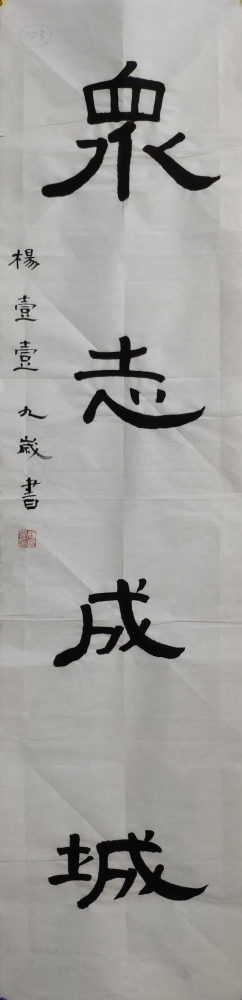 103
眾志成城
楊壹壹九歲書